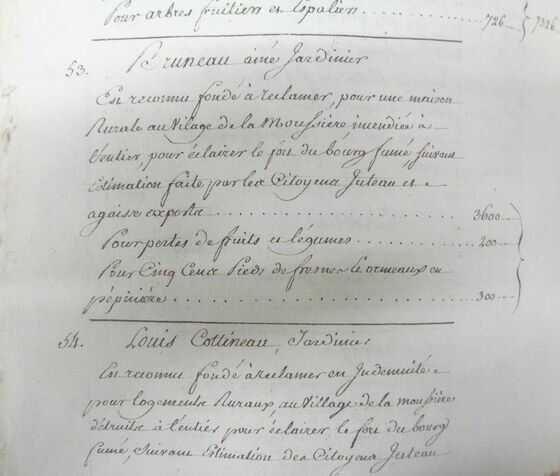 Pour arbres fruitiers et Espaliers . . . . . . . . . . 726
53. Bruneau ainé Jardinier
Est reconnu fondé à réclamer, pour une maison
Rurale au Village de la Moussière, incendiée à
l'entier, pour éclairer le fort du bourg fumé, suivant
Estimation faite par les Citoyens Juteau et
agaisse experts . . . . . . . . . . 3600
Pour pertes de fruits et légumes . . . . . . . . . . 200
Pour Cinq Cens Pieds de fresnes & ormeaux en
pépinière . . . . . . . . . . 300
54. Louis Cottineau, Jardinier
Est reconnu fondé à réclamer en Indemnité
pour logements Ruraux, au Village de la moussière
détruits à l'entier pour éclairer le fort du bourg
fumé, Suivant Estimation des Citoyens Juteau